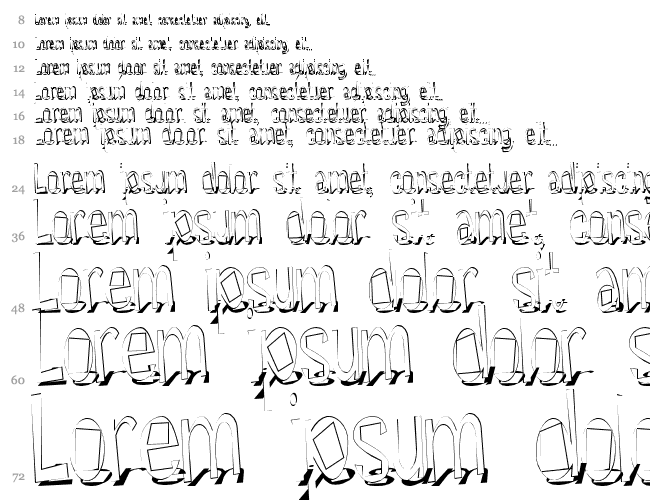 8 Lorem ipsum dolor sit amet, consectetuer adipiscing, elit...
10 Lorem ipsum dolor sit amet, consectetuer adipiscing, elit...
12 Lorem ipsum dolor sit amet, consectetuer adipiscing, elit...
14 Lorem ipsum dolor sit amet, consectetuer adipiscing, elit...
16 Lorem ipsum dolor sit amet, consectetuer adipiscing, elit...
18 Lorem ipsum dolor sit amet, consectetuer adipiscing, elit...
24 Lorem ipsum dolor sit amet, consectetuer adipiscing
36 Lorem ipsum dolor sit amet, conse
48 Lorem ipsum dolor sit am
60 Lorem ipsum dolor s
72 Lorem ipsum dolo